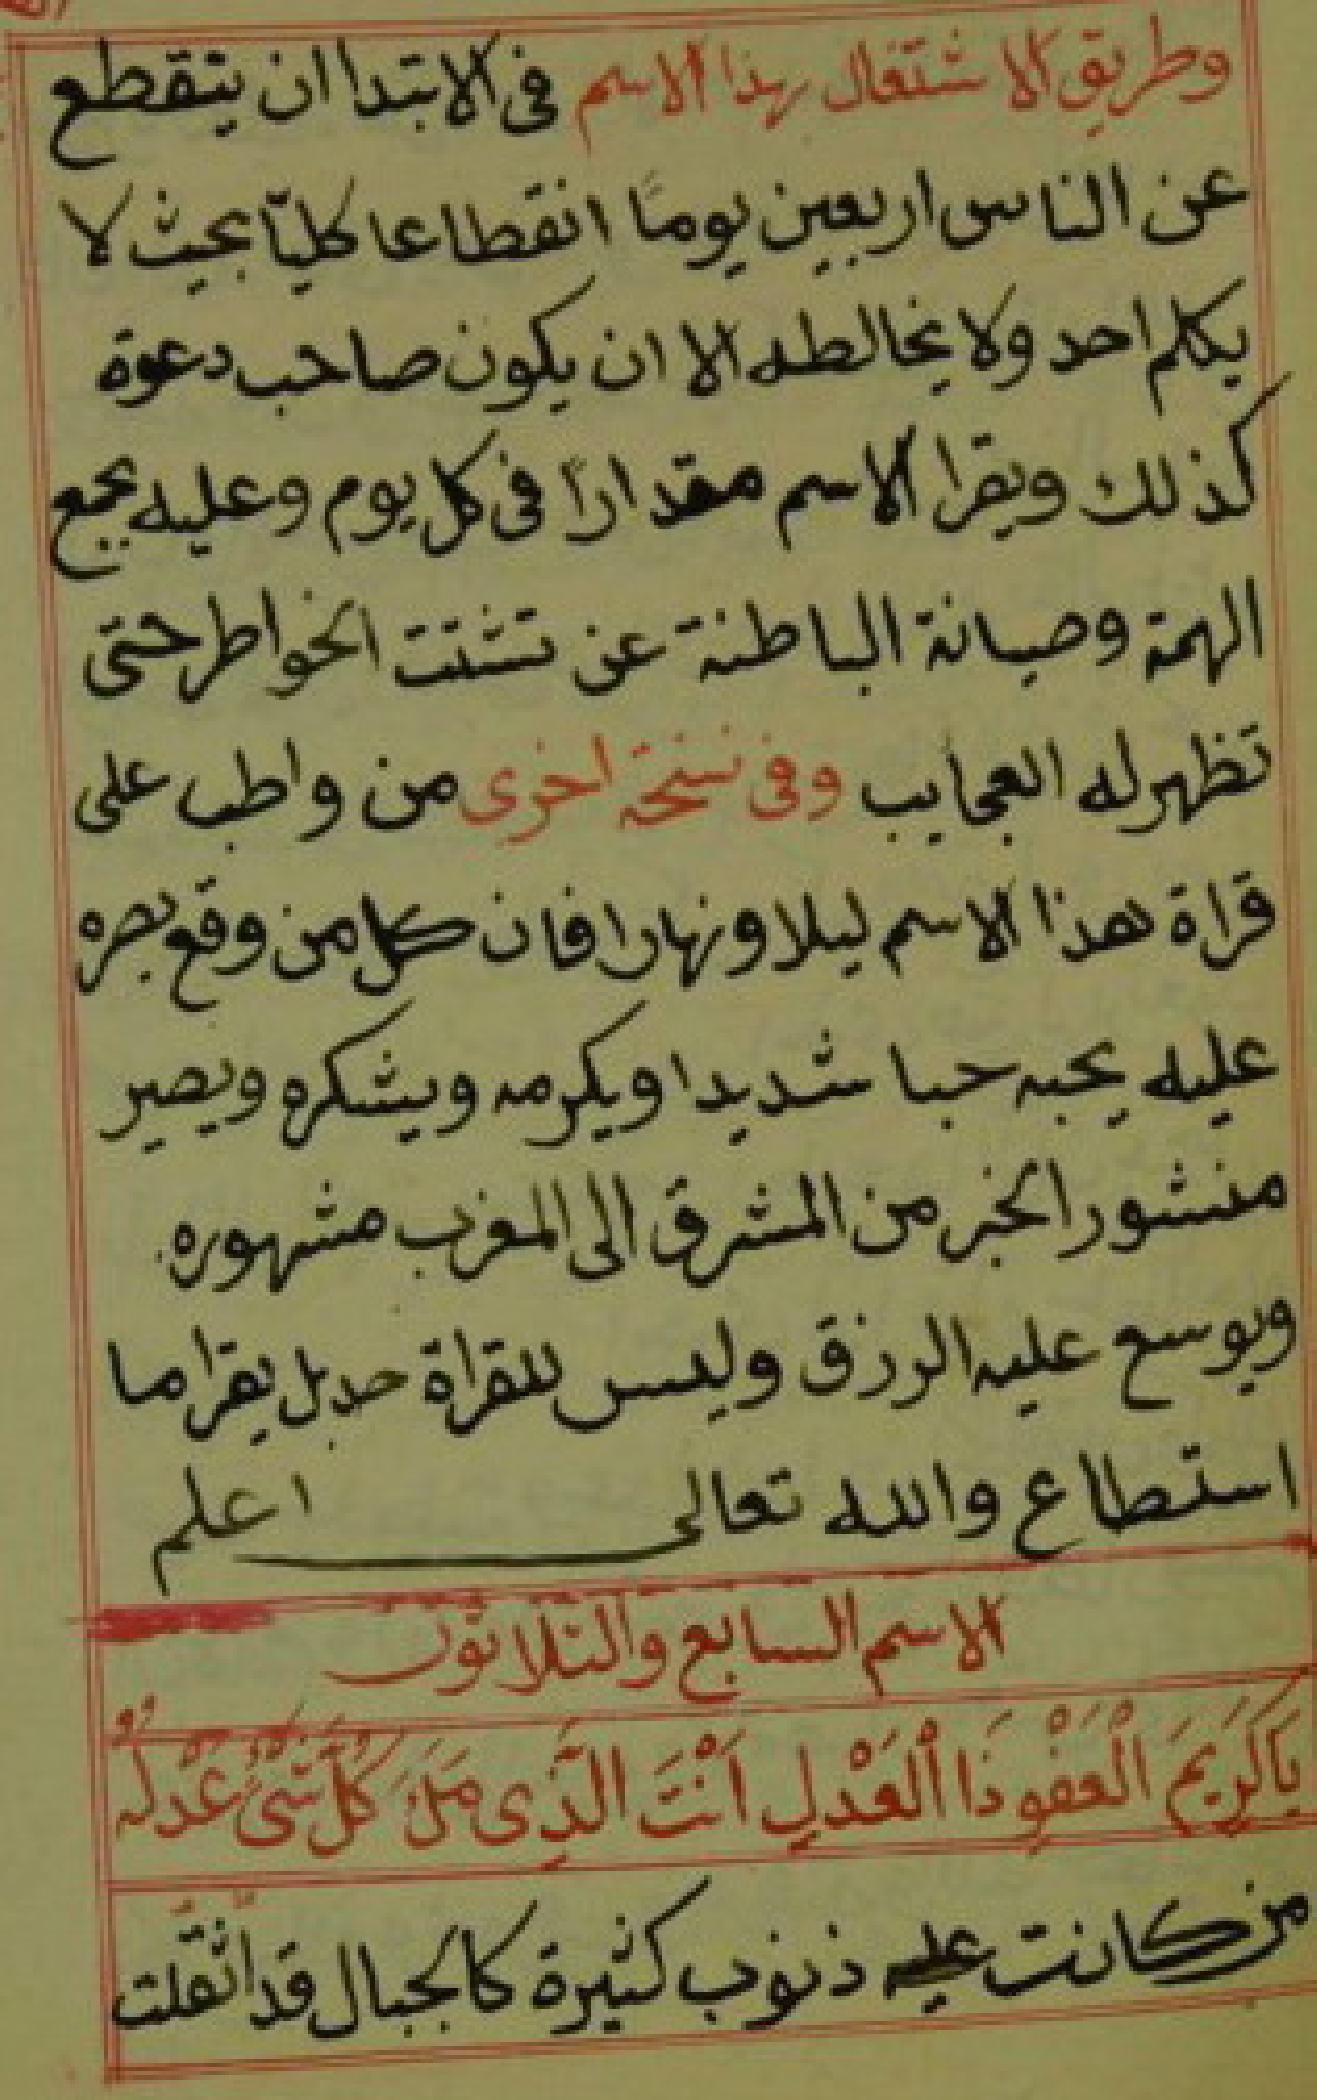 وطريق الاشتغال بهذا الاسم فى الابتدا ان يتقطع
عن الناس اربعين يومًا انقطاعا كليّا بحيث لا
يكلم احد ولا يخالطه الا ان يكون صاحب دعوة
كذلك ويقرا الاسم مقدارًا فى كل يوم وعليه بجمع
الهمة وصيانة الباطنة عن تشتت الخواطر حتى
تظهر له العجايب وفى نسخة اخرى من واطب على
قراة هذا الاسم ليلا ونهارا فان كل من وقع بصره
عليه يحبه حبا شديدا ويكرمه ويشكره ويصير
منشور الخبر من المشرق الى المغرب مشهوره
ويوسع عليه الرزق وليس للقراة حد بل يقرا ما
استطاع والله تعالى اعلم
الاسم السابع والثلاثون
يَاكَرِيمَ الْعَفْوِ ذَا الْعَدْلِ اَنْتَ الَّذِى مَلَءَ كُلَّ شَىْءٍ عَدْلُهُ
من كانت عليه ذنوب كثيرة كالجبال قد اثقلت